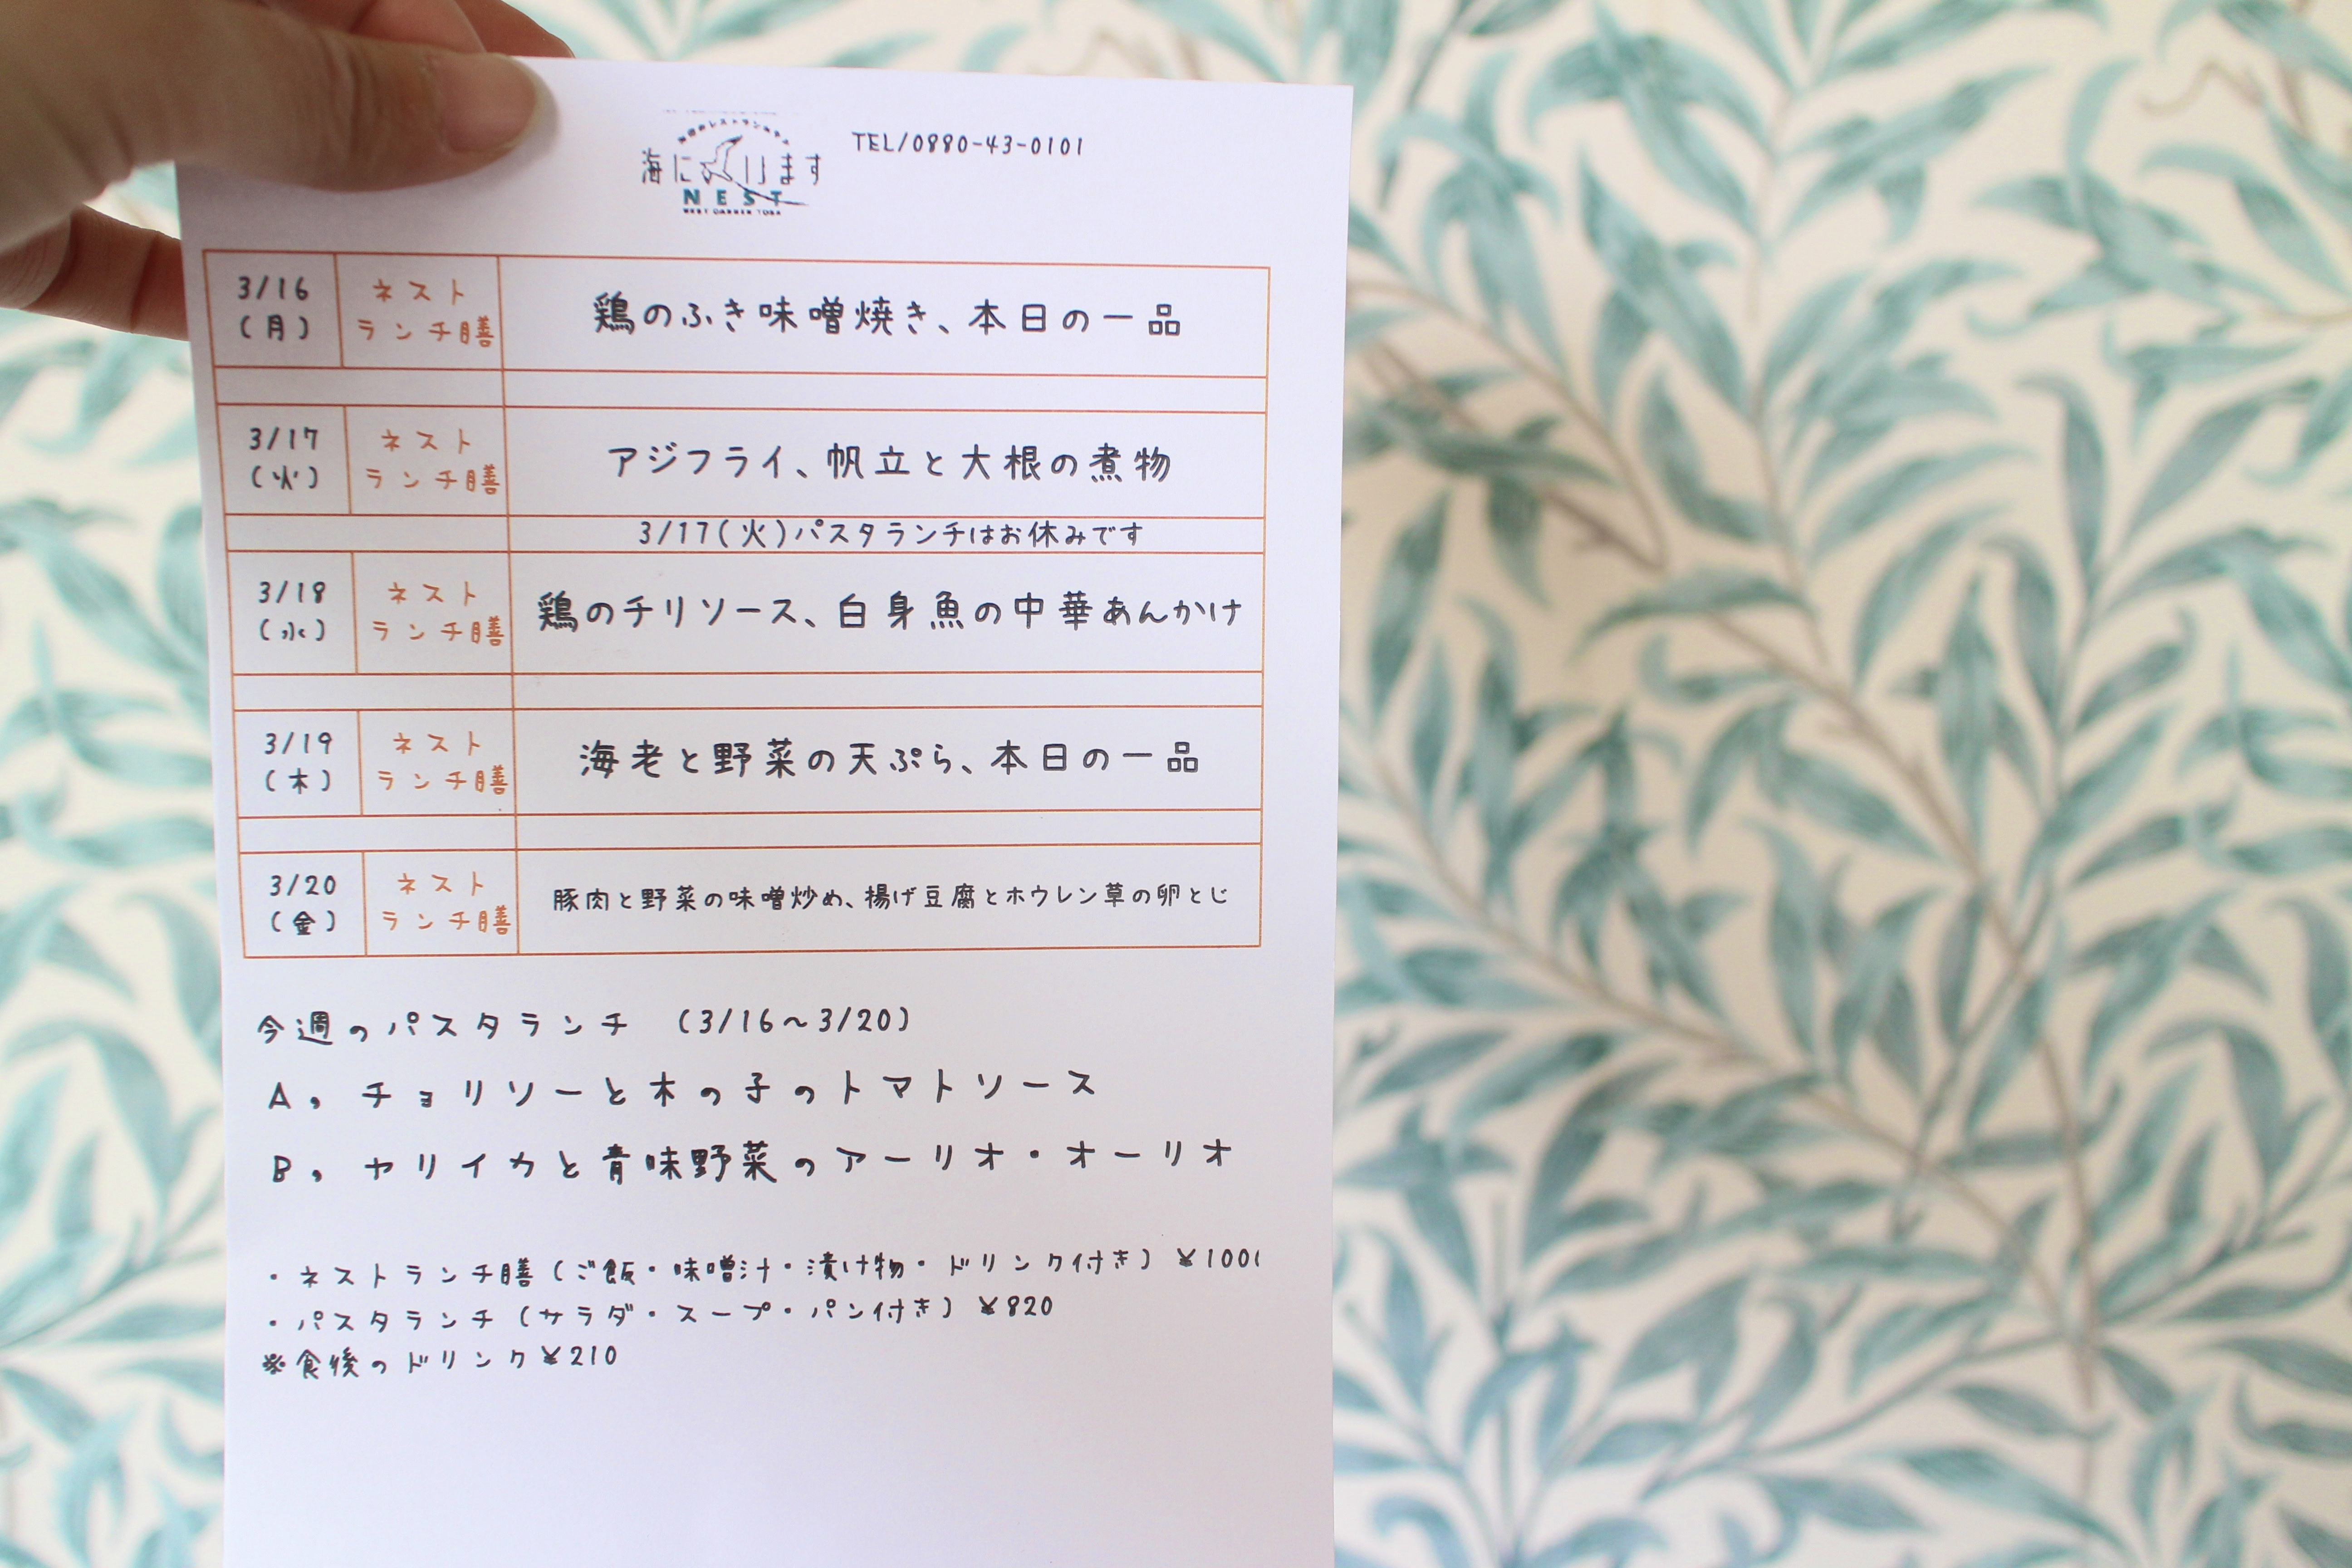 海に Iります
NEST
TEL/0880-43-0101
3/16
(月)
ネスト
ランチ膳
鶏のふき味噌焼き、本日の一品
3/17
(火)
ネスト
ランチ膳
アジフライ、帆立と大根の煮物
3/17(火)パスタランチはお休みです
3/18
(水)
ネスト
ランチ膳
鶏のチリソース、白身魚の中華あんかけ
3/19
(木)
ネスト
ランチ膳
海老と野菜の天ぷら、本日の一品
3/20
(金)
ネスト
ランチ膳
豚肉と野菜の味噌炒め、揚げ豆腐とホウレン草の卵とじ
今週のパスタランチ (3/16～3/20)
A, チョリソーと木の子のトマトソース
B, ヤリイカと青味野菜のアーリオ・オーリオ
・ネストランチ膳(ご飯・味噌汁・漬け物・ドリンク付き) ¥100
・パスタランチ(サラダ・スープ・パン付き) ¥820
※食後のドリンク¥210